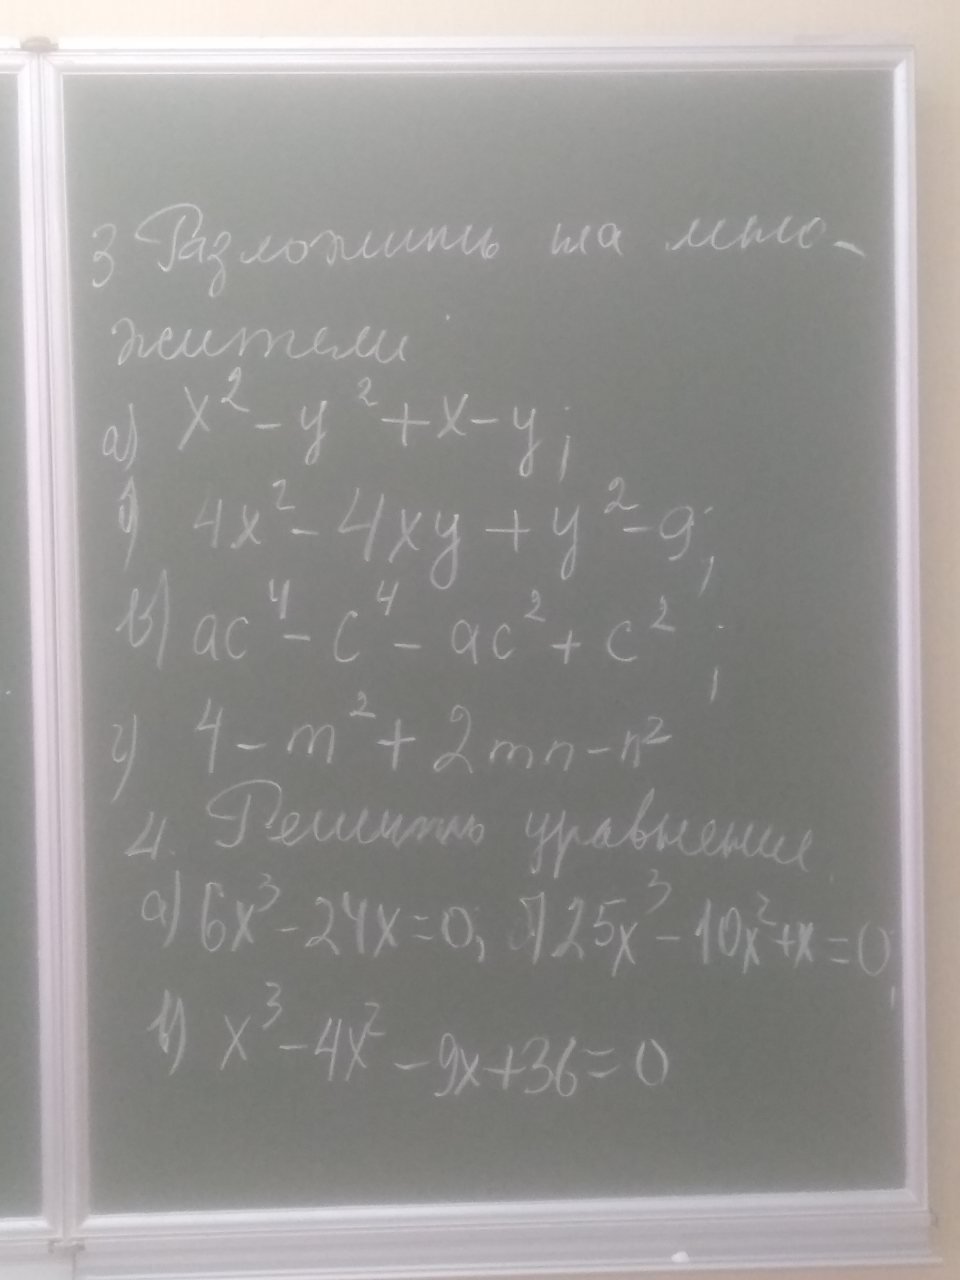 3 Разложить на мно-
жители
а) x² - y² + x - y;
б) 4x² - 4xy + y² - 9;
в) ac⁴ - c⁴ - ac² + c²;
г) 4 - m² + 2mn - n²
4. Решить уравнение
а) 6x³ - 24x = 0; б) 25x³ - 10x² + x = 0;
в) x³ - 4x² - 9x + 36 = 0